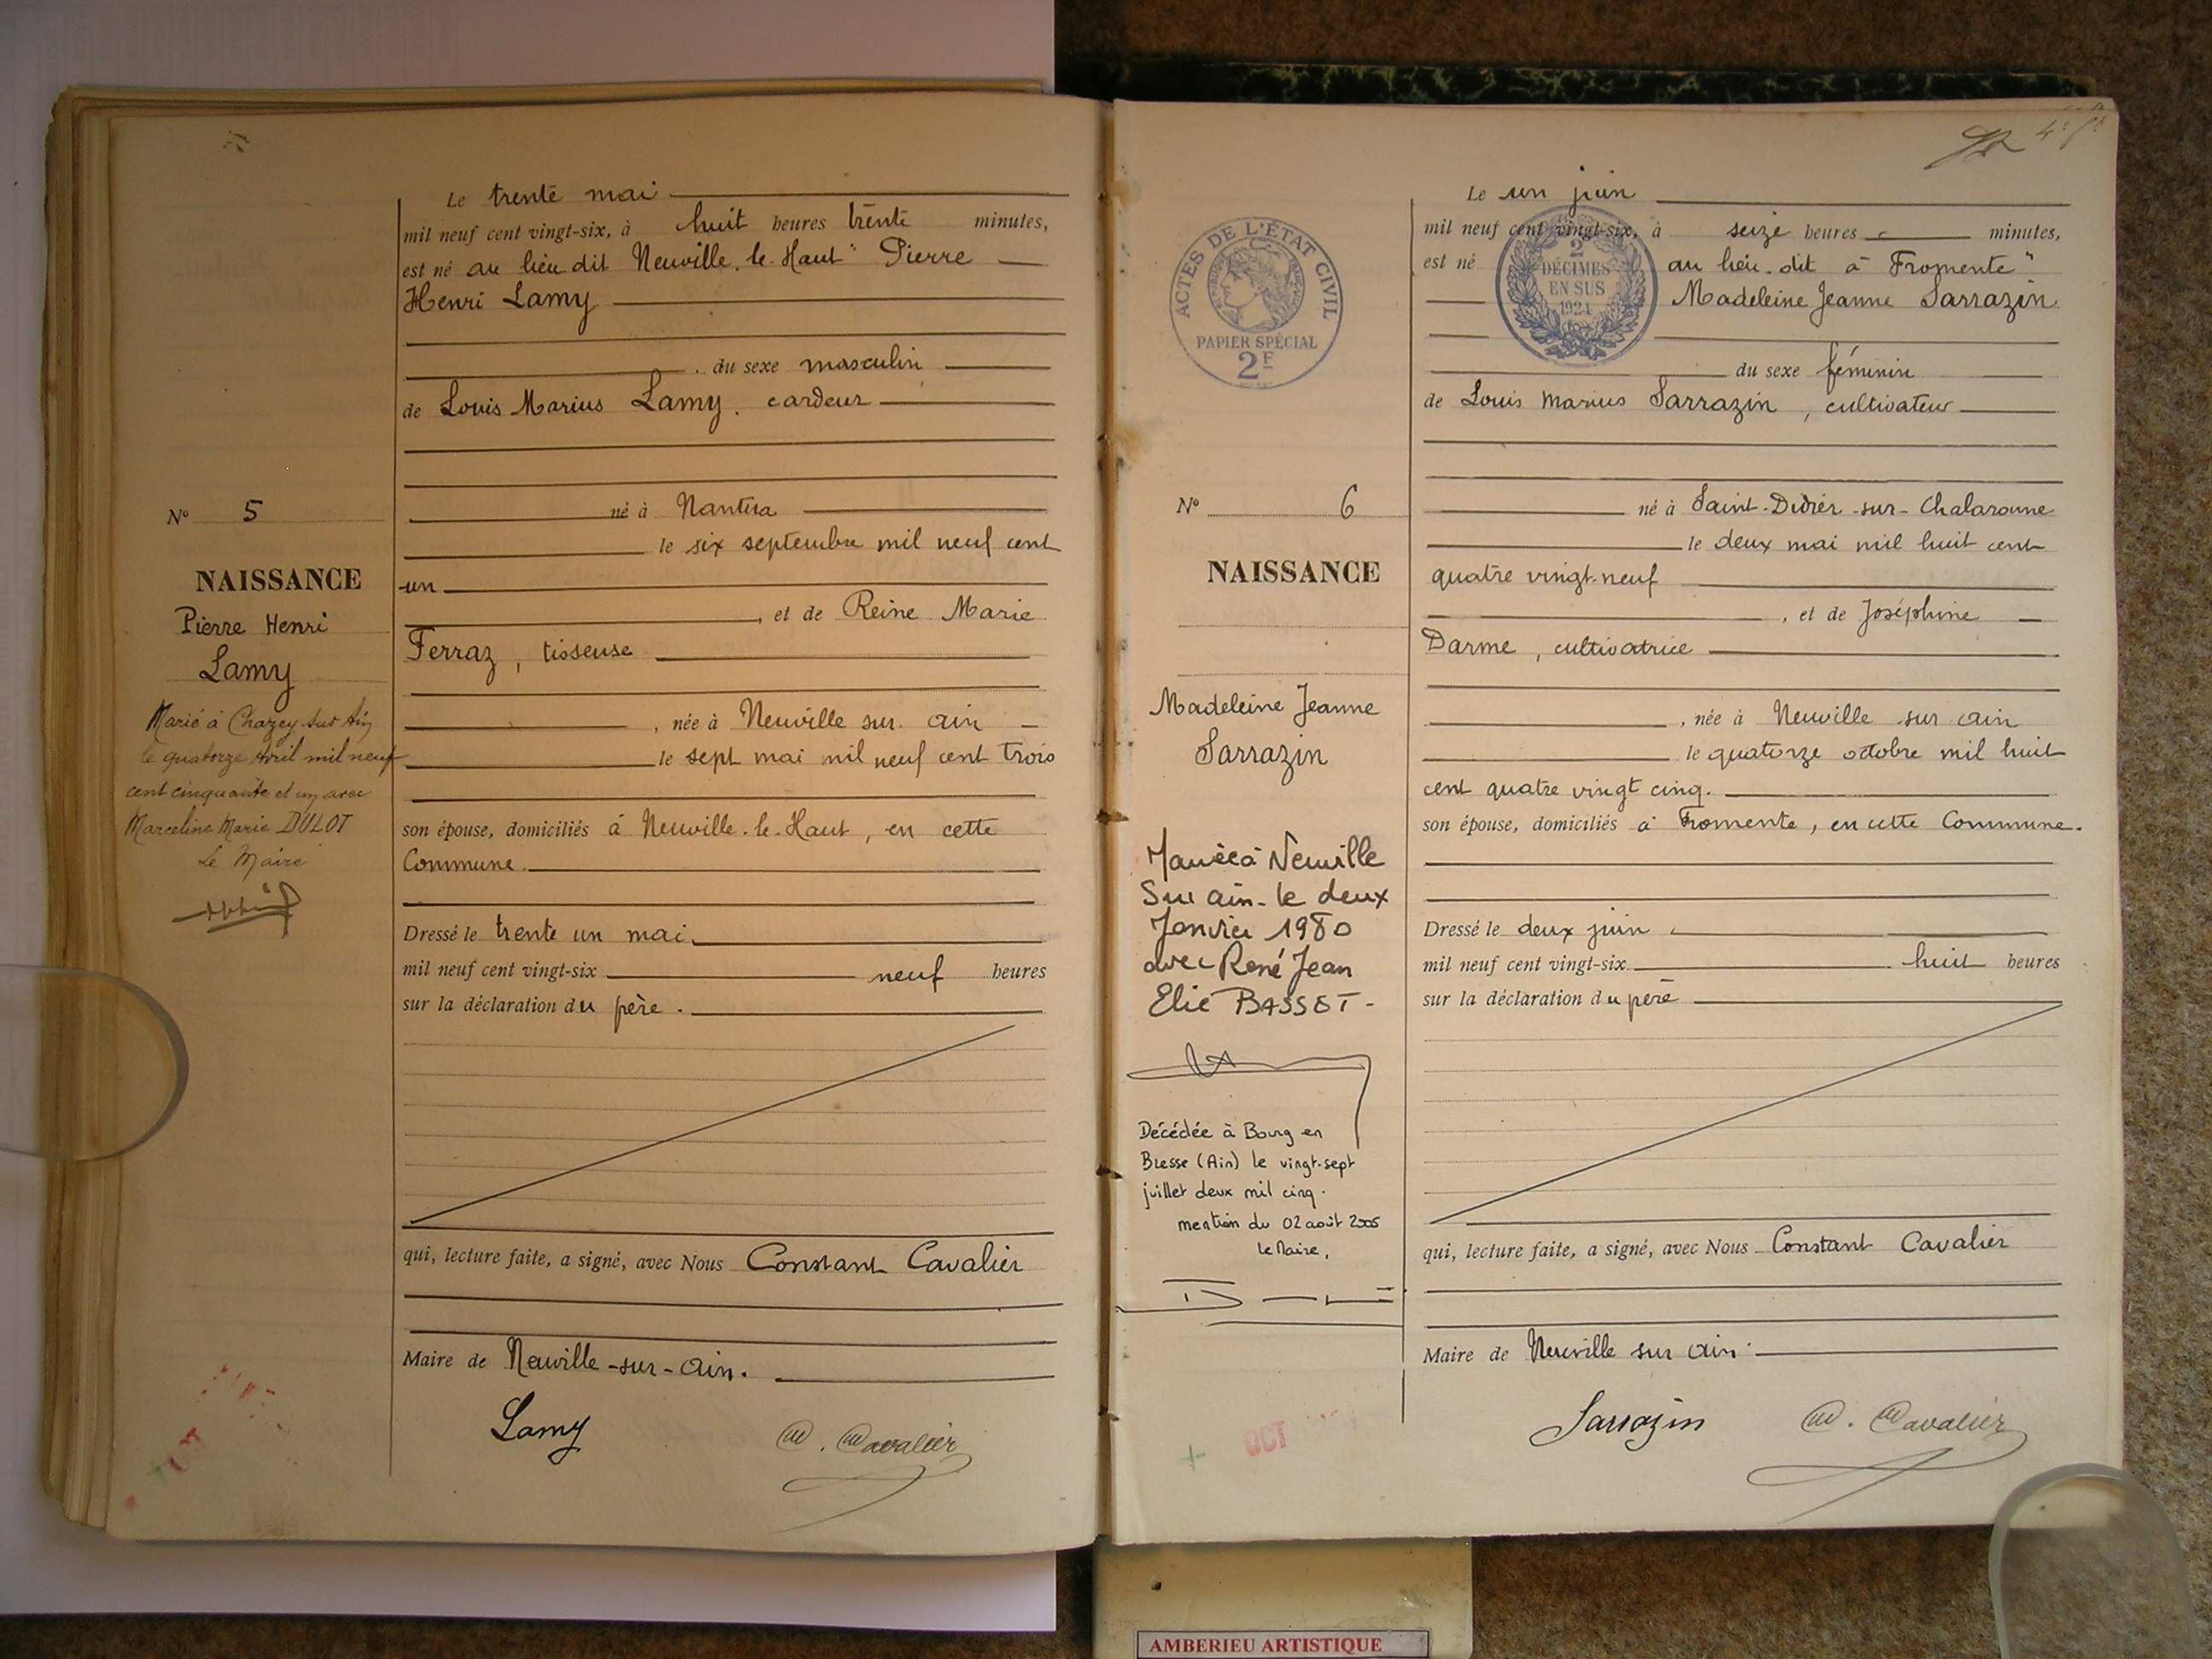 Le trente mai
mil neuf cent vingt-six, à huit heures trente minutes,
est né au lieu dit Neuville-le-Haut" Pierre
Henri Lamy
du sexe masculin
de Louis Marius Lamy, cardeur
né à Nantua
le six septembre mil neuf cent
un
, et de Reine Marie
Ferraz, tisseuse
, née à Neuville sur ain
le sept mai mil neuf cent trois
son épouse, domiciliés à Neuville-le-Haut, en cette
Commune.
Dressé le trente un mai
mil neuf cent vingt-six neuf heures
sur la déclaration du père.
qui, lecture faite, a signé, avec Nous Constant Cavalier
Maire de Neuville-sur-Ain.
Lamy
C. Cavalier
N° 5
NAISSANCE
Pierre Henri
Lamy
Marié à Chazey sur Ain
le quatorze Avril mil neuf
cent cinquante et un avec
Marceline Marie DULOT
Le Maire
Le un juin
mil neuf cent vingt-six, à seize heures minutes,
est né au lieu-dit à Fromente"
Madeleine Jeanne Sarrazin
du sexe féminin
de Louis Marius Sarrazin, cultivateur
né à Saint-Didier-sur-Chalaronne
le deux mai mil huit cent
quatre vingt-neuf
, et de Joséphine
Darme, cultivatrice
, née à Neuville sur ain
le quatorze octobre mil huit
cent quatre vingt cinq.
son épouse, domiciliés à Fromente, en cette Commune.
Dressé le deux juin
mil neuf cent vingt-six huit heures
sur la déclaration du père
qui, lecture faite, a signé, avec Nous Constant Cavalier
Maire de Neuville sur Ain.
Sarrazin
C. Cavalier
ACTES DE L'ÉTAT CIVIL
PAPIER SPÉCIAL
2F
2
DÉCIMES
EN SUS
1924
N° 6
NAISSANCE
Madeleine Jeanne
Sarrazin
Mariée à Neuville
Sur ain - le deux
Janvier 1980
avec René Jean
Elie BASSET -
Décédée à Bourg en
Bresse (Ain) le vingt-sept
juillet deux mil cinq.
mention du 02 août 2005
Le Maire,
OCT
AMBERIEU ARTISTIQUE